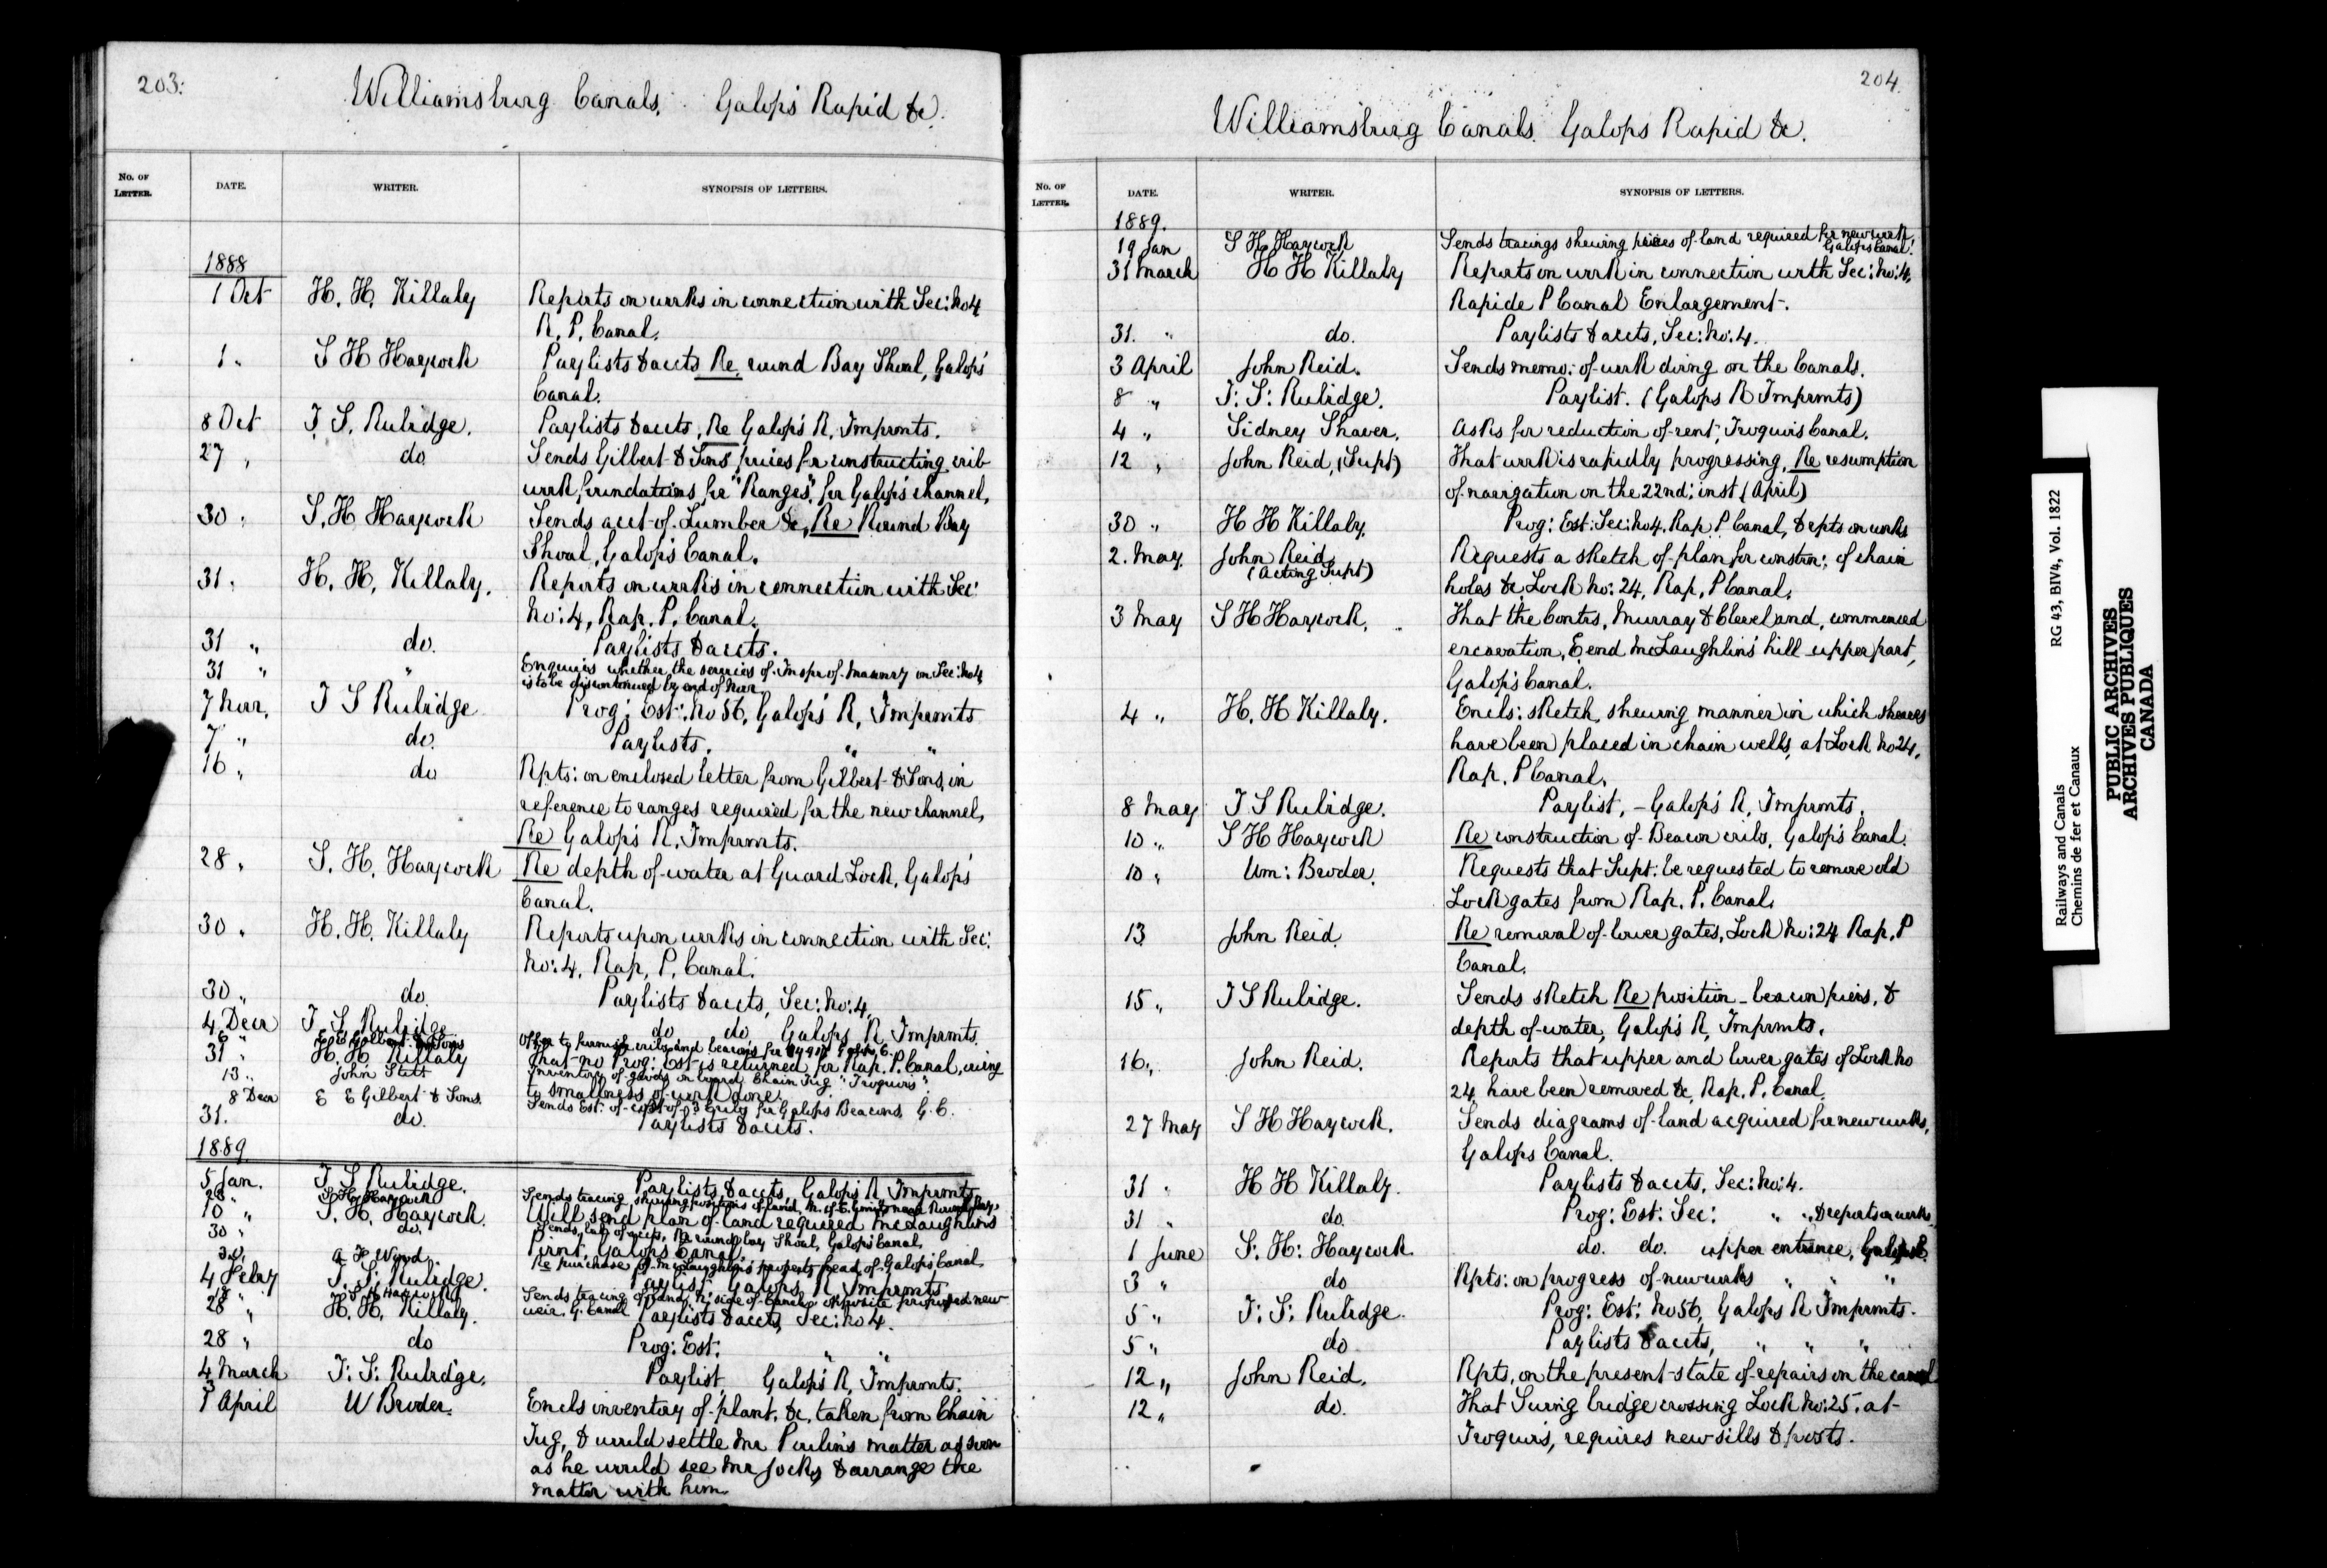 203.
Williamsburg Canals. Galops Rapid &c.
No. OF LETTER. DATE. WRITER. SYNOPSIS OF LETTERS.
1888
1 Oct H. H. Killaly Reports on works in connection with Sec: No 4
R. P. Canal.
1 " S H Haycock Paylists & accts Re round Bay Shoal, Galops
Canal.
8 Oct T. S. Rubidge. Paylists & accts, Re Galops R, Imprmts.
27 " do Sends Gilbert & Sons prices for constructing crib
work foundations for "Ranges", for Galops channel,
30 " S. H Haycock Sends acct of Lumber &c, Re Round Bay
Shoal, Galops Canal.
31 " H. H. Killaly. Reports on works in connection with Sec:
No: 4, Rap. P. Canal.
31 " do. Paylists & accts.
31 " " Enquires whether the services of Inspr of Masonry on Sec: No 4
is to be discontinued by end of Novr
7 Novr. T S Rubidge Prog: Est: No 56, Galops R, Imprmts
7 " do. Paylists. " "
16 " do Rpts: on enclosed letter from Gilbert & Sons, in
reference to ranges required for the new channel,
Re Galops R. Imprmts.
28 " S. H. Haycock Re depth of water at Guard Lock, Galops
Canal.
30 " H. H. Killaly Reports upon works in connection with Sec:
No: 4, Rap. P. Canal.
30 " do. Paylists & accts, Sec: No: 4.
4 Decr T. S. Rubidge do do Galops R Imprmts.
6 " E E Gilbert & Sons Offer to furnish cribs and beacons for
31 " H. H. Killaly That no Prog: Est is returned for Rap. P. Canal, owing
to smallness of work done.
13 " John Stott Inventory of goods on board Chain Tug "Iroquois"
8 Decr E E Gilbert & Sons. Sends Est: of cost of 3 Cribs for Galops Beacons, G. C.
31. do. Paylists & accts.
1889
5 Jan. T S Rubidge. Paylists & accts, Galops R Imprmts
28 " S H Haycock Sends tracing shewing positions of land,
10 " S. H. Haycock. Will send plan of land required McLaughlins
Point, Galops Canal.
30 " do. Re round bay Shoal, Galops Canal.
30. A F Wood. Re purchase of McLaughlin's property head of Galops Canal
4 Feby T. S. Rubidge. Paylist Galops R Imprmts
18 " S H Haycock Sends tracing of land, N. side of Canal opposite proposed new
weir, G. Canal
28 " H. H. Killaly. Paylists & accts, Sec: No 4.
28 " do Prog: Est: " "
4 March T. S: Rubidge. Paylist Galops R, Imprmts.
April W Broder. Encls inventory of plant, &c, taken from Chain
Tug, & would settle Mr Poulins matter as soon
as he would see Mr Jocks & arrange the
matter with him
204.
Williamsburg Canals. Galops Rapid &c.
No. OF LETTER. DATE. WRITER. SYNOPSIS OF LETTERS.
1889.
19 Jan S H Haycock Sends tracings shewing pieces of land required for new work
Galops Canal.
31 March H H Killaly Reports on work in connection with Sec: No: 4,
Rapide P Canal Enlargement.
31. " do. Paylists & accts, Sec: No: 4.
3 April John Reid. Sends memo: of work doing on the Canals.
8 " T: S: Rubidge. Paylist. (Galops R Imprmts)
4 " Sidney Shaver. Asks for reduction of rent, Iroquois Canal.
12 " John Reid, (Supt) That work is rapidly progressing, Re resumption
of navigation on the 22nd: inst (April)
30 " H H Killaly. Prog: Est: Sec: No 4. Rap P Canal, & rpts on works
2. May. John Reid Requests a sketch of plan for constrn: of chain
(Acting Supt)
holes &c, Lock No: 24, Rap. P Canal.
3 May S H Haycock. That the Contrs, Murray & Cleveland, commenced
excavation, E end McLaughlin's hill upper part,
Galops Canal.
4 " H. H Killaly. Encls: sketch, shewing manner in which sheaves
have been placed in chain wells, at Lock No 24,
Rap. P Canal.
8 May T S Rubidge. Paylist, - Galops R, Imprmts.
10 " S H Haycock Re construction of Beacon cribs, Galops Canal.
10 " Wm: Broder. Requests that Supt: be requested to remove old
Lock gates from Rap. P. Canal.
13 John Reid. Re removal of lower gates, Lock No: 24 Rap. P
Canal.
15 " T S Rubidge. Sends sketch Re position - beacon piers, &
depth of water, Galops R, Imprmts.
16 " John Reid. Reports that upper and lower gates of Lock No
24 have been removed &c, Rap. P. Canal.
27 May S H Haycock. Sends diagrams of land acquired for new works,
Galops Canal.
31 " H H Killaly. Paylists & accts, Sec: No: 4.
31 " do. Prog: Est: Sec: " " & reports on works
1 June S: H: Haycock do. do. upper entrance, Galops C.
3 " do Rpts: on progress of new works " " "
5 " T: S: Rubidge. Prog: Est: No 56, Galops R Imprmts.
5 " do Paylists & accts, " " "
12 " John Reid. Rpts, on the present state of repairs on the canal
12 " do. That Swing bridge crossing Lock No: 25, at
Iroquois, requires new sills & posts.
Railways and Canals
Chemins de fer et Canaux
RG 43, BIV4, Vol. 1822
PUBLIC ARCHIVES
ARCHIVES PUBLIQUES
CANADA